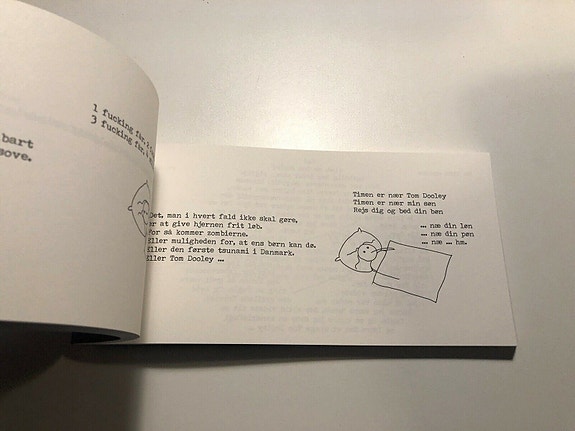 1 fucking får, 2
3 fucking får,
bart
sove.
Det, man i hvert fald ikke skal gøre,
er at give hjernen frit løb.
For så kommer zombierne.
Eller muligheden for, at ens børn kan dø.
Eller den første tsunami i Danmark.
Eller Tom Dooley …
Timen er nær Tom Dooley
Timen er nær min søn
Rejs dig og bed din bøn
… næ din løn
… næ din pøn
… næ … hm.